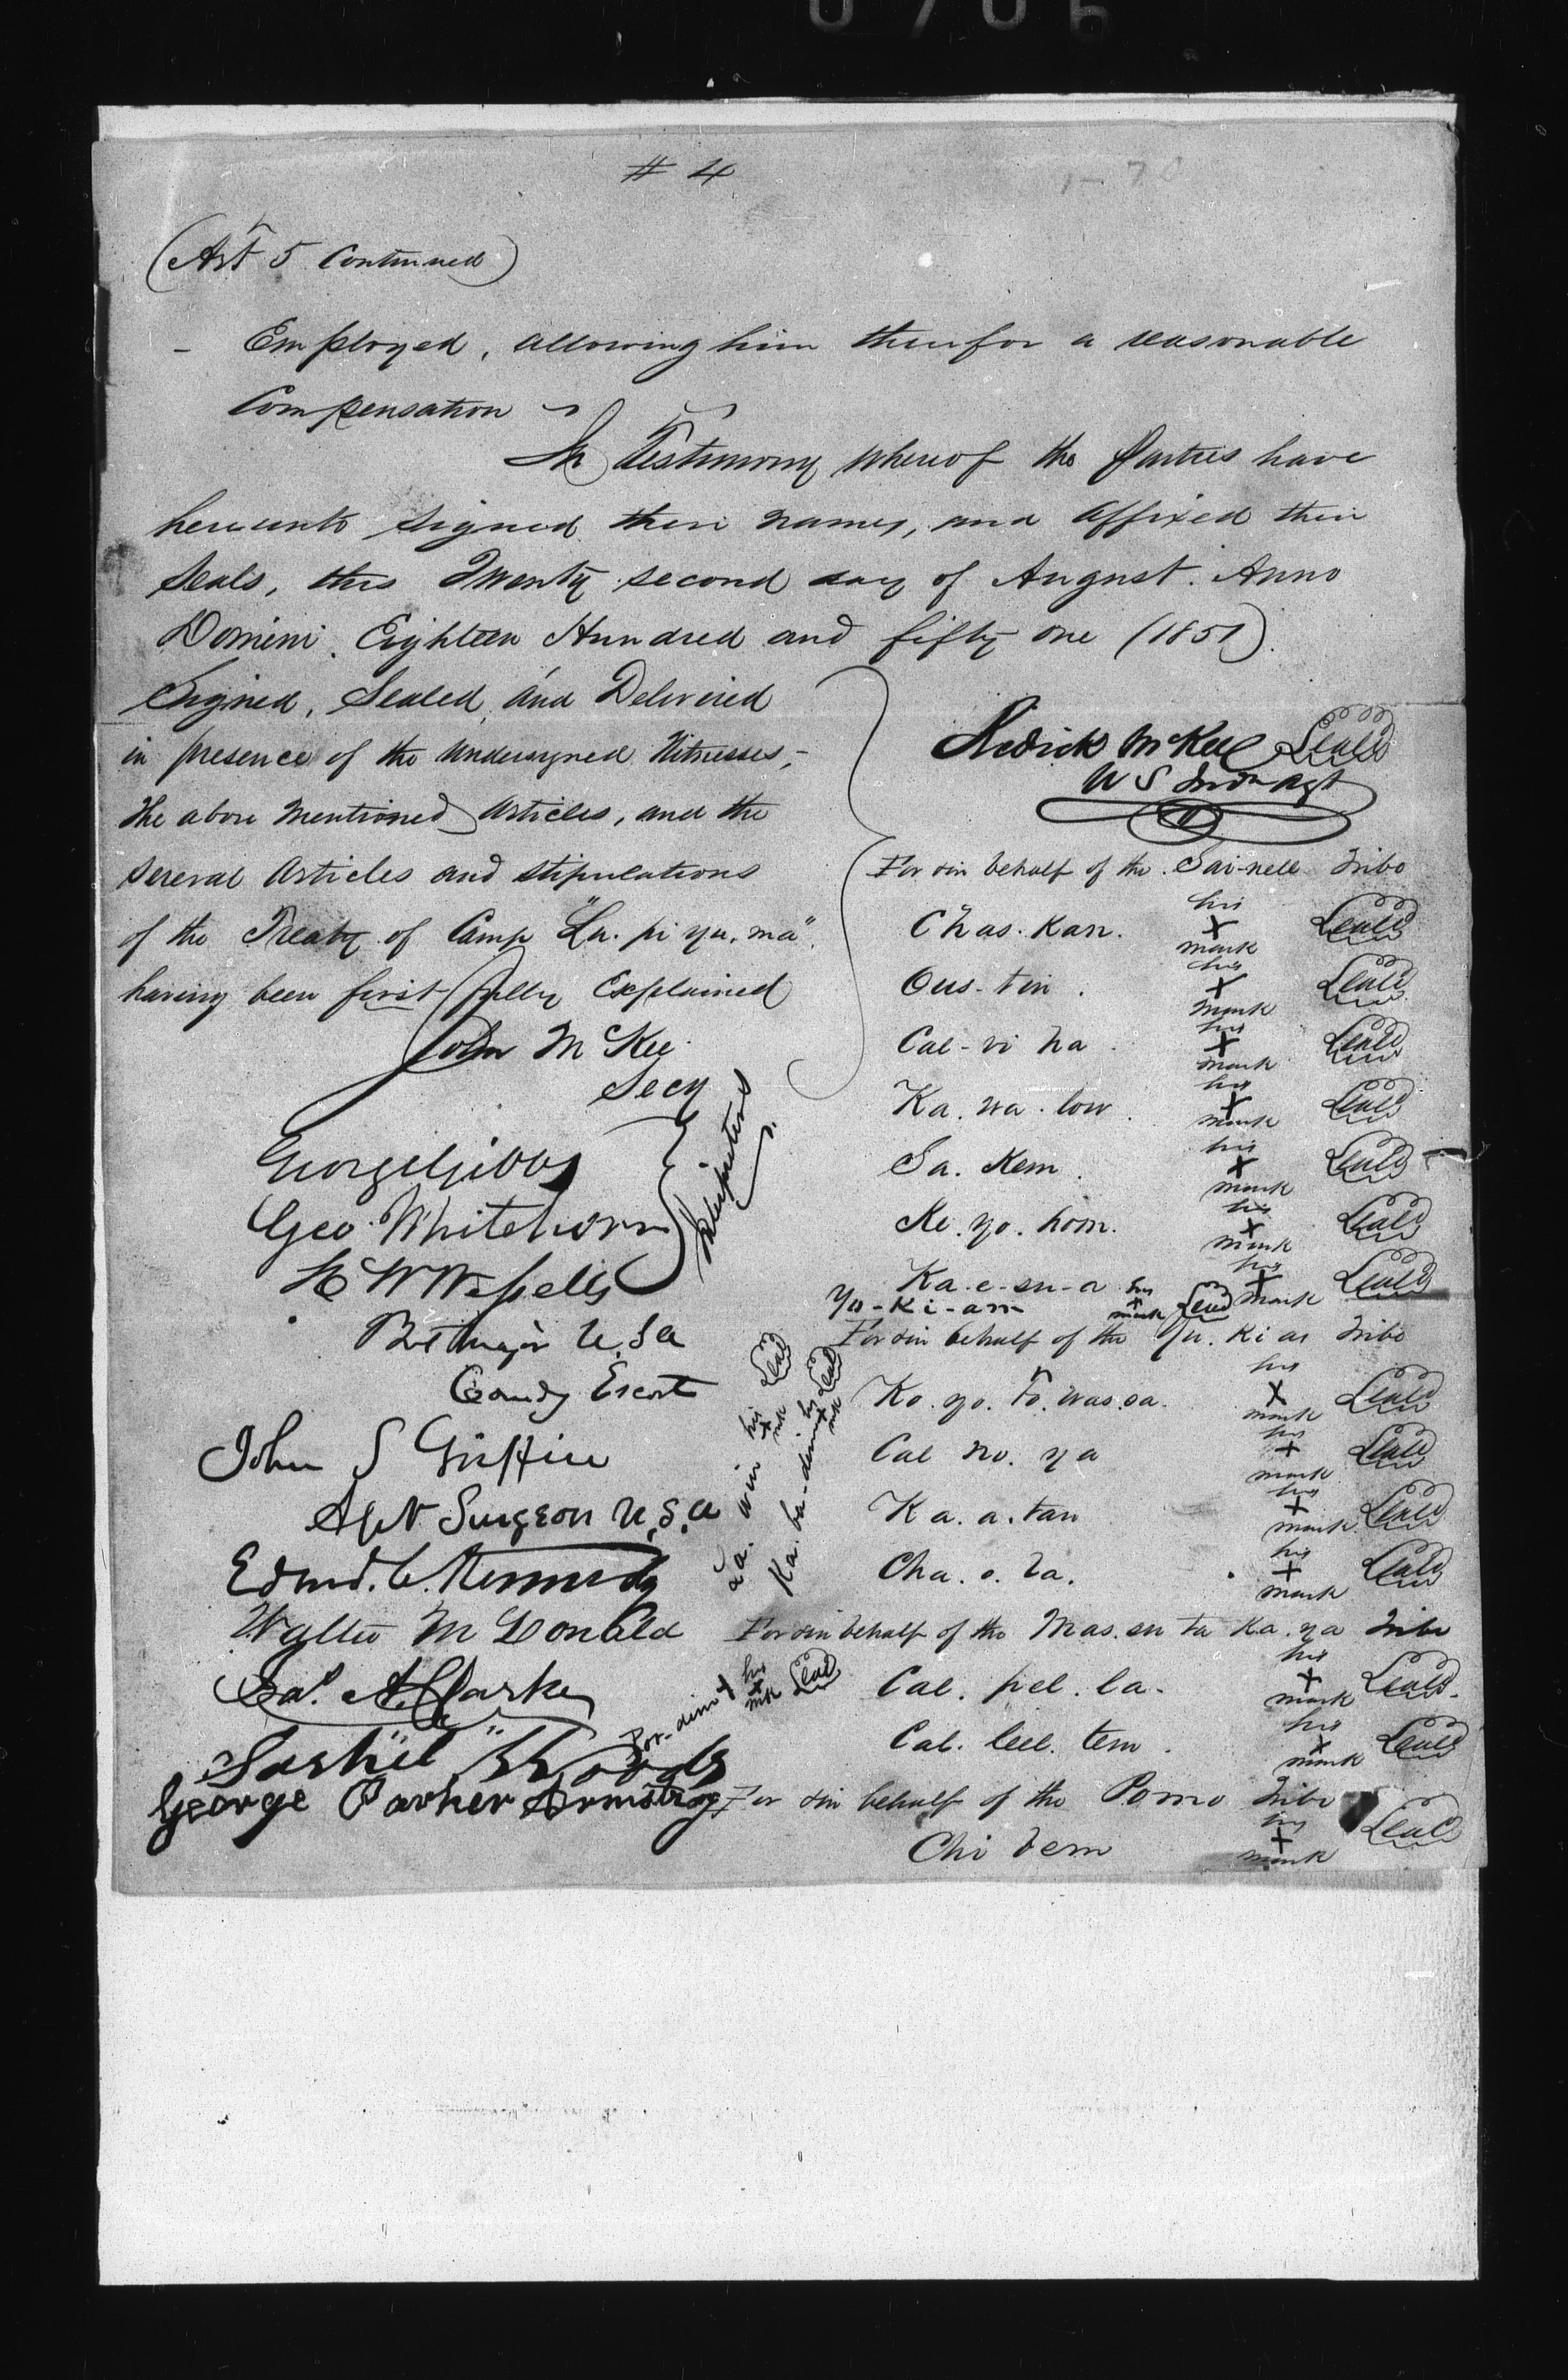 # 4
(Art 5 Continued)
- Employed, allowing him therefor a reasonable
Compensation
In Testimony whereof the Parties have
hereunto signed their names, and affixed their
Seals, this Twenty second day of August. Anno
Domini. Eighteen Hundred and fifty one (1851).
Signed, Sealed, and Delivered
in presence of the undersigned Witnesses,-
the above mentioned Articles, and the
several Articles and stipulations
of the Treaty of Camp "Lu. pi yu. ma",
having been first fully Explained
John McKee
Secy
George Gibbs
Geo. Whitehorn
Interpreters
H W Wessells
Bvt Major U.S.A
Comdg Escort
John S Griffin
Asst Surgeon U.S.A
Edmd. C. Kennedy
Walter McDonald
Tas. A. Clarke
George Parker Armstrong
Redick McKee Seal
U S Indn Agt
For & in behalf of the Sai-nell Tribe
Chas. Kan. his X mark Seal
Ous-tin. his X mark Seal
Cal-vi na. his X mark Seal
Ka. wa. low. his X mark Seal
Sa. Kem. his X mark Seal
Ke. yo. hom. his X mark Seal
Ka-e-su-a his X mark Seal
Yu-Ki-am his X mark Seal
For & in behalf of the Yu. Ki as Tribe
Ko. yo. to. was. sa. his X mark Seal
Cal no. ya his X mark Seal
Ka. a. tan his X mark Seal
Cha. o. ta. his X mark Seal
La. win his X mk Seal
Ka. ba-demi his X mk Seal
For & in behalf of the Mas. su ta Ka. ya Tribe
Cal. pel. la. his X mark Seal.
Cal. leel. tem. his X mark Seal
Por-dim + his X mk Seal
For & in behalf of the Pomo Tribe
Chi dem his X mark Seal